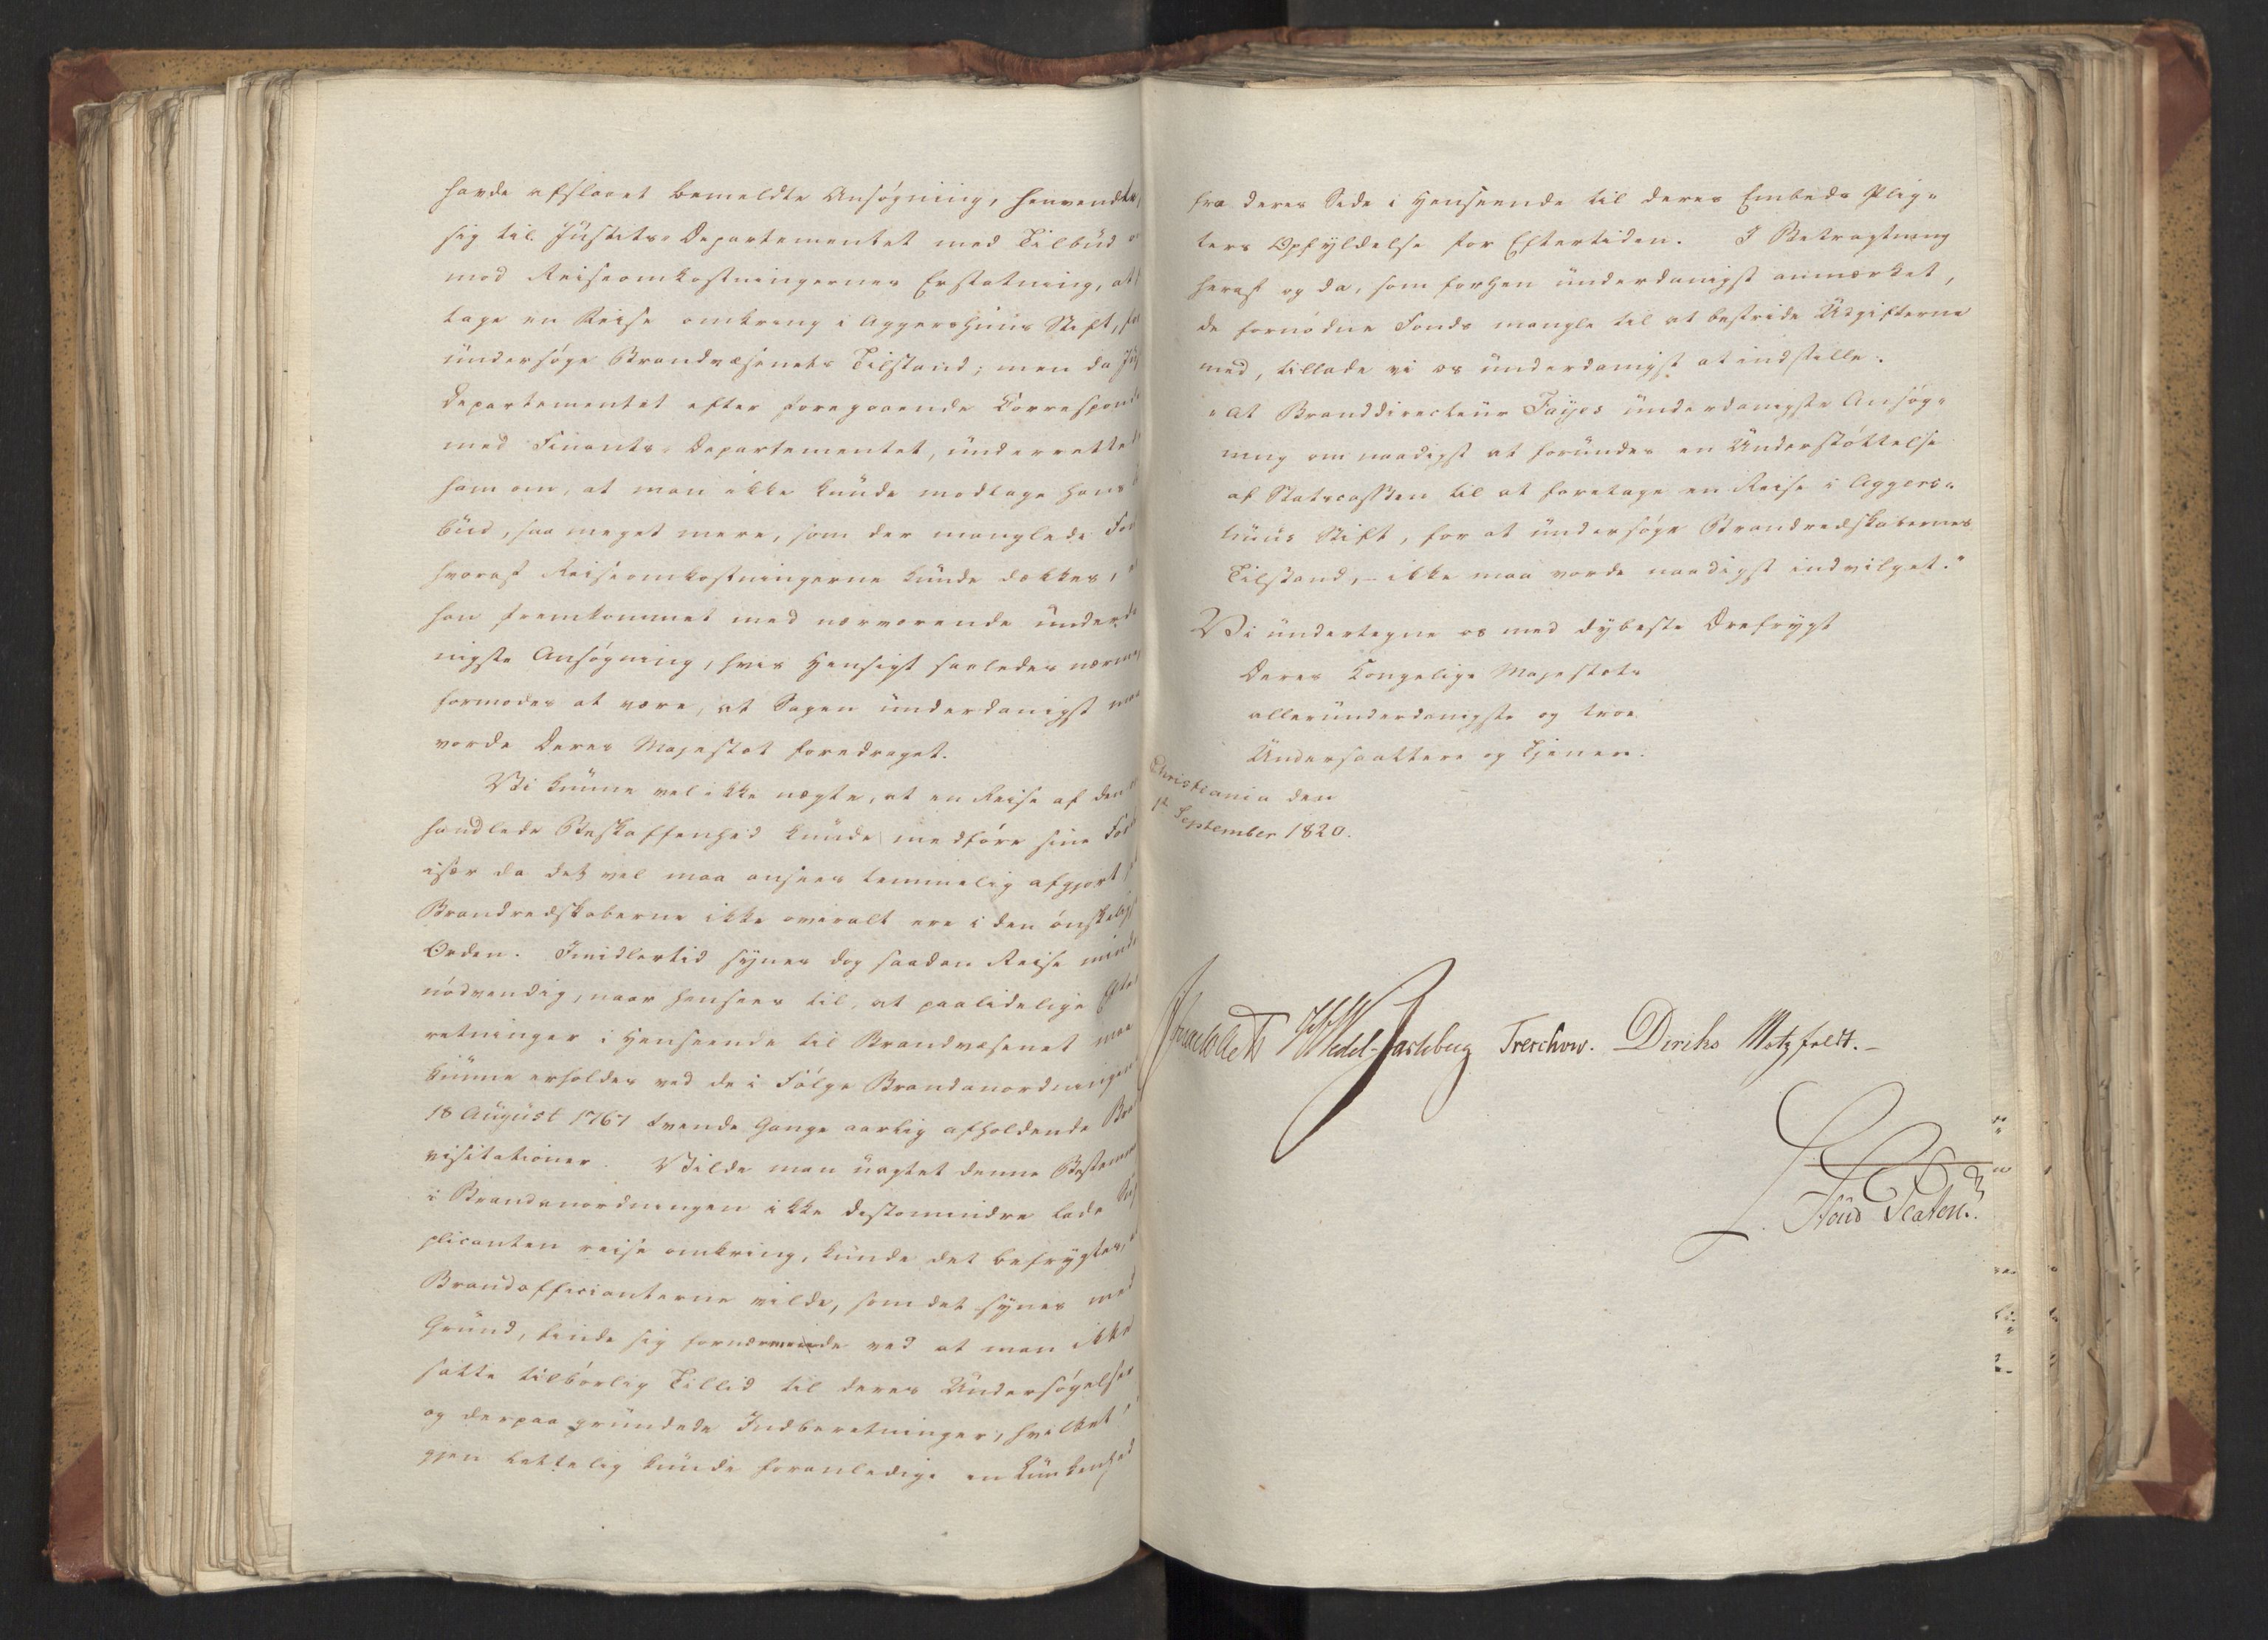 havde afslaaet bemeldte Ansøgning, henvendte
sig til Justits-Departementet med Tilbud
mod Reiseomkostningernes Erstatning, at
tage en Reise omkring i Aggershuus Stift, for
undersøge Brandvæsenets Tilstand; men da
Departementet efter foregaaende Correspond
med Finants-Departementet, underrettede
ham om, at man ikke kunde modtage hans
bud, saa meget mere, som der manglede Fo
hvoraf Reiseomkostningerne kunde dækkes,
han fremkommet med nærværende underda
nigste Ansøgning, hvis Hensigt saaledes nærme
formodes at være, at Sagen underdanigst maa
vorde Deres Majestæt foredraget.
Vi kunne vel ikke nægte, at en Reise af den
handlede Beskaffenhed kunde medføre sine For
især da det vel maa ansees temmelig afgjort
Brandredskaberne ikke overalt ere i den ønskeligs
Orden. Imidlertid synes dog saadan Reise mindre
nødvendig, naar hensees til, at paalidelige Efter
retninger i Henseende til Brandvæsenet maa
kunne erholdes ved de i Følge Brandanordningen
18 August 1767 tvende Gange aarlig afholdende Bra
visitationer. Vilde man uagtet denne Bestemm
i Brandanordningen ikke destomindre lade Sup
plicanten reise omkring, kunde det befrygtes,
Brandofficianterne vilde, som det synes med
Grund, finde sig fornærmede ved at man ikke
satte tilbørlig Tillid til deres Undersøgelser
og derpaa grundede Indberetninger, hvilket
gjen lettelig kunde foranledige en Lunkenhed
fra deres Side i Henseende til deres Embeds Plig-
ters Opfyldelse for Eftertiden. I Betragtning
heraf og da, som forhen underdanigst anmærket,
de fornødne Fonds mangle til at bestride Udgifterne
med, tillade vi os underdanigst at indstille:
"at Branddirecteur Fayes underdanigste Ansøg-
ning om naadigst at forundes en Understøttelse
af Statscassen til at foretage en Reise i Aggers-
huus Stift, for at undersøge Brandredskabernes
Tilstand, - ikke maa vorde naadigst indvilget."
Vi undertegne os med dybeste Ærefrygt
Deres Kongelige Majestæts
allerunderdanigste og troe
Undersaattere og Tjenere.
Christiania den
1st September 1820.
Wedel-Jarlsberg Treschow. Diriks Motzfeldt.-